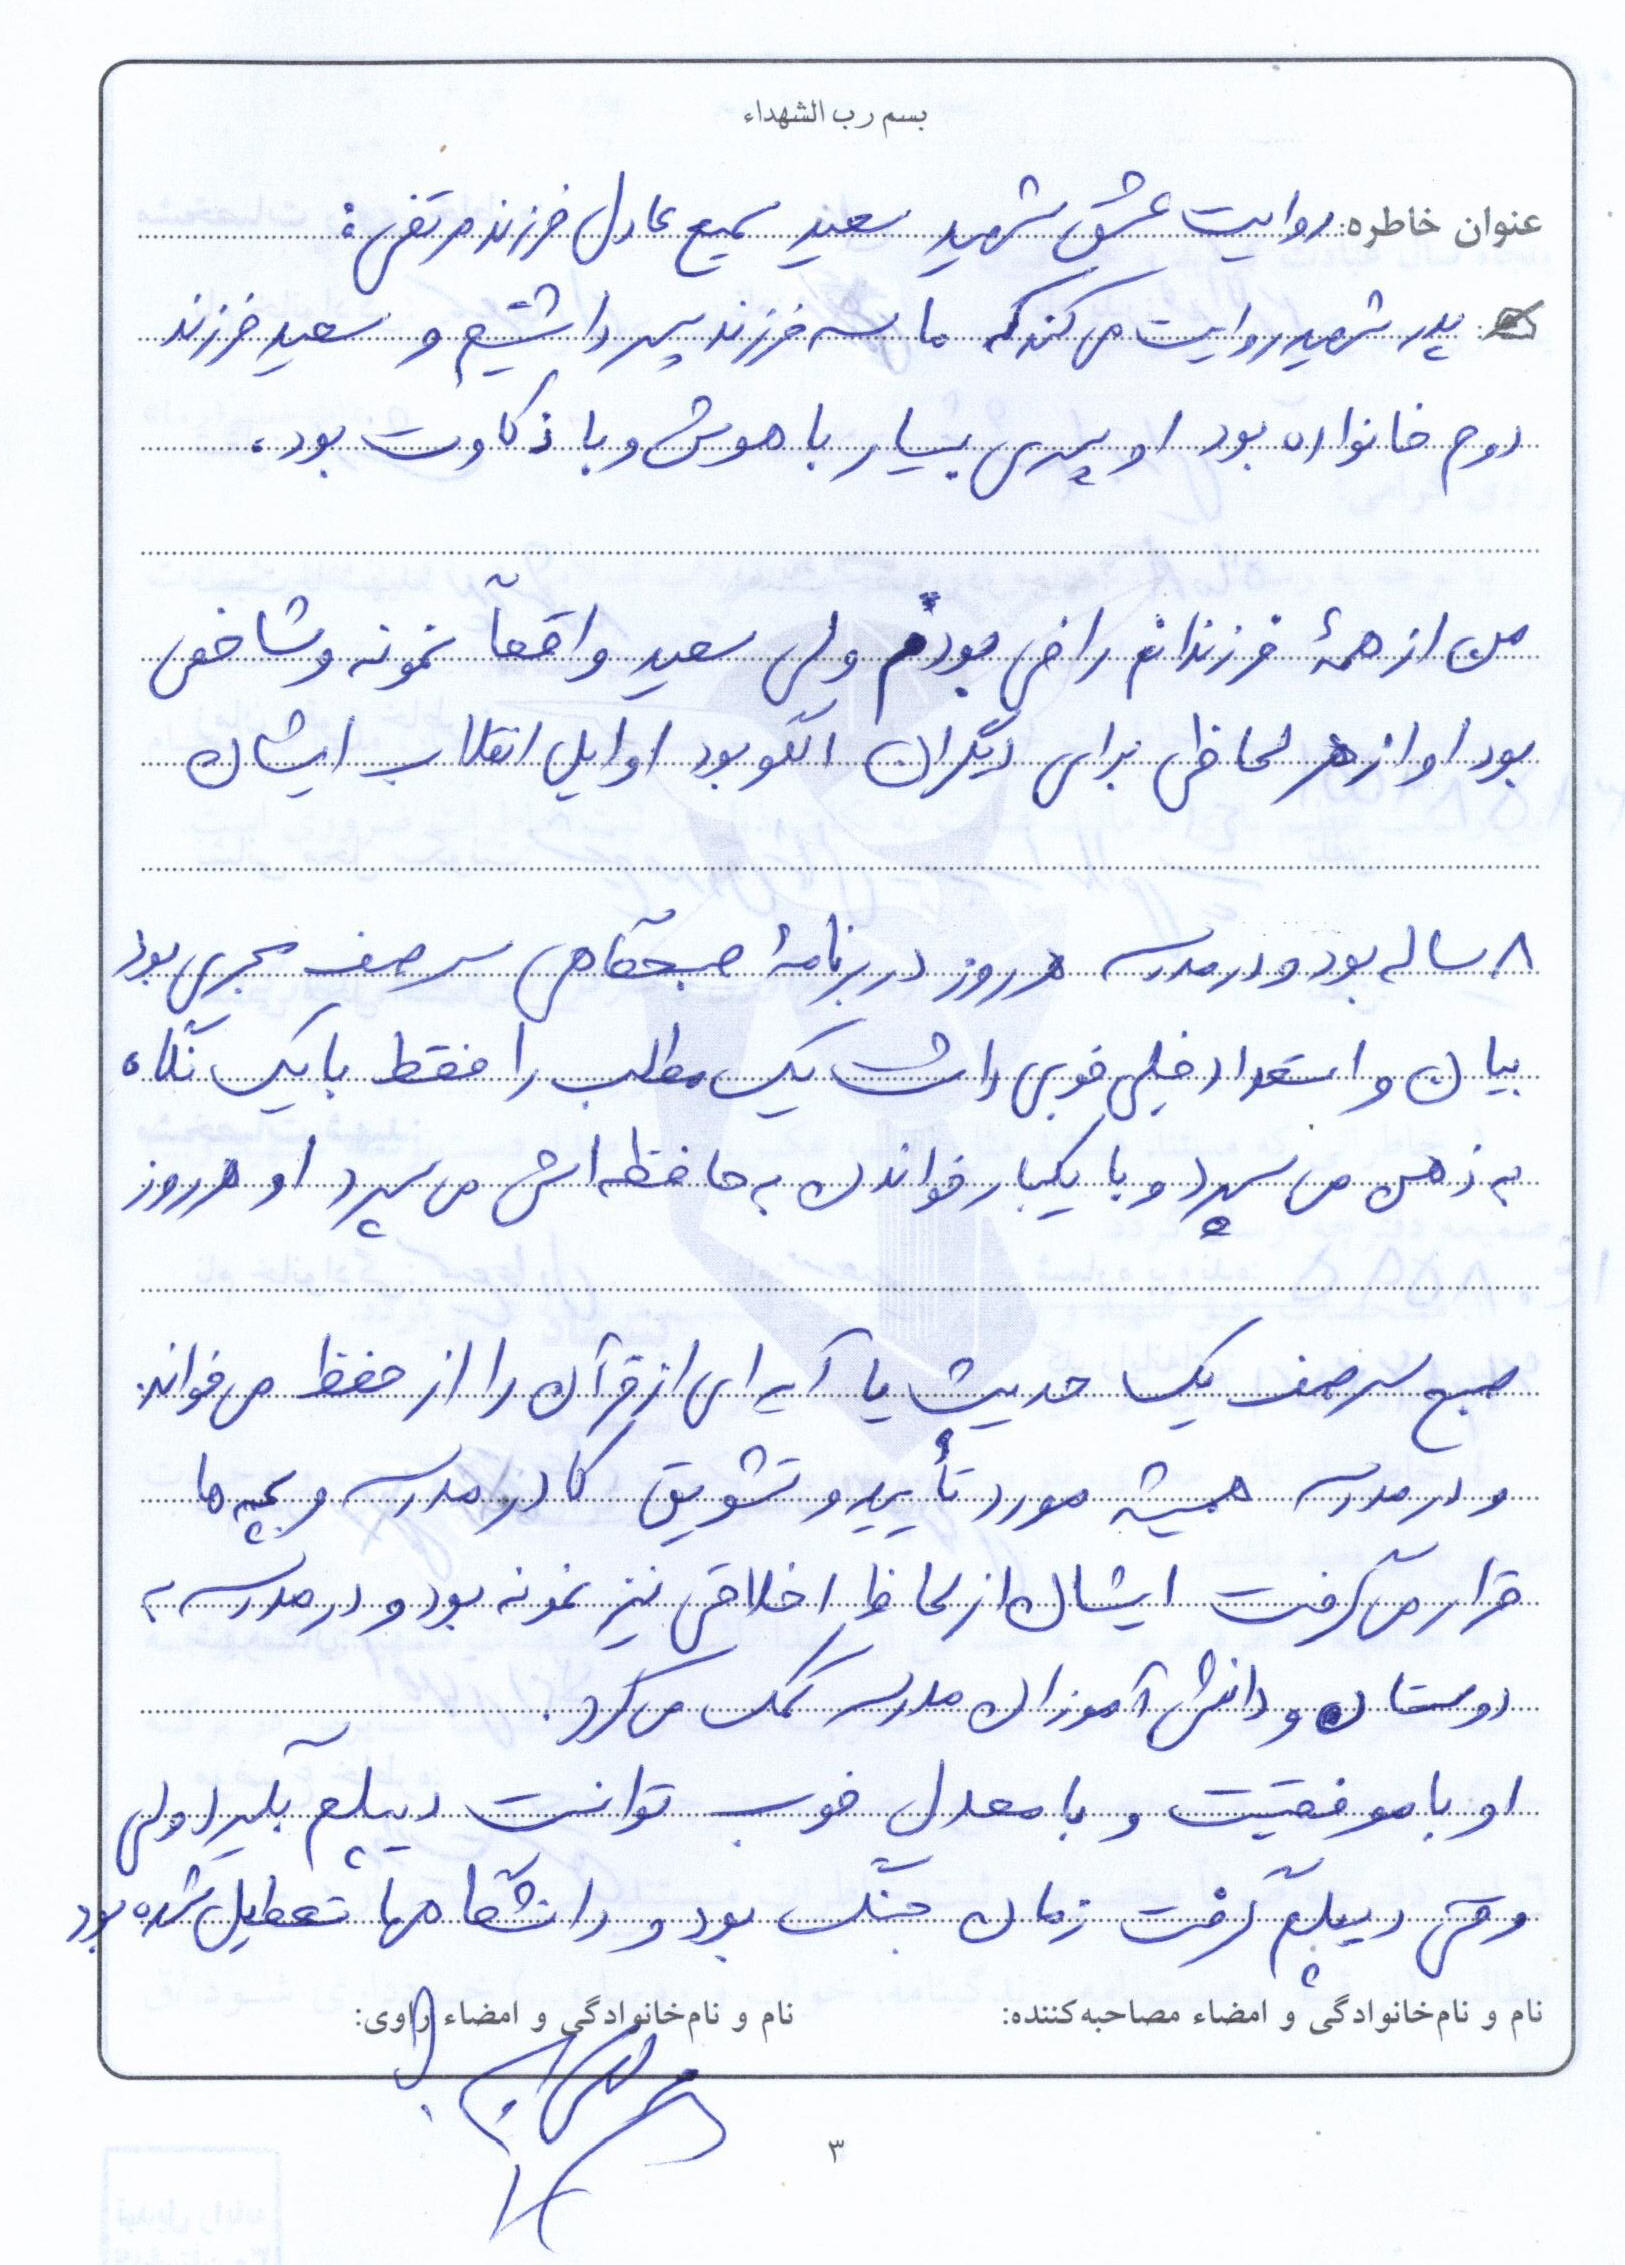 بسم رب الشهداء
عنوان خاطره: روایت عشق شهید سعید سمیع عادل فرزند مرتضی:
پدر شهید روایت می‌کند که ما سه فرزند پسر داشتیم و سعید فرزند
دوم خانواده بود او پسری بسیار با هوش و با ذکاوت بود.
من از همهٔ فرزندانم راضی بودم ولی سعید واقعاً نمونه و شاخص
بود او از هر لحاظی برای دیگران الگو بود اوایل انقلاب ایشان
۸ ساله بود و در مدرسه هر روز در برنامهٔ صبحگاهی سر صف مجری بود
بیان و استعداد خیلی خوبی داشت یک مطلب را فقط با یک نگاه
به ذهن می‌سپرد و با یکبار خواندن به حافظه‌اش می‌سپرد او هر روز
صبح سر صف یک حدیث یا آیه‌ای از قرآن را از حفظ می‌خواند
و در مدرسه همیشه مورد تأیید و تشویق کادر مدرسه و بچه‌ها
قرار می‌گرفت ایشان از لحاظ اخلاقی نیز نمونه بود و در مدرسه به
دوستان و دانش‌آموزان مدرسه کمک می‌کرد.
او با موفقیت و با معدل خوب توانست دیپلم بگیرد ولی
وقتی دیپلم گرفت زمان جنگ بود و دانشگاه‌ها تعطیل شده بود
نام و نام‌خانوادگی و امضاء مصاحبه‌کننده: نام و نام‌خانوادگی و امضاء راوی:
۳